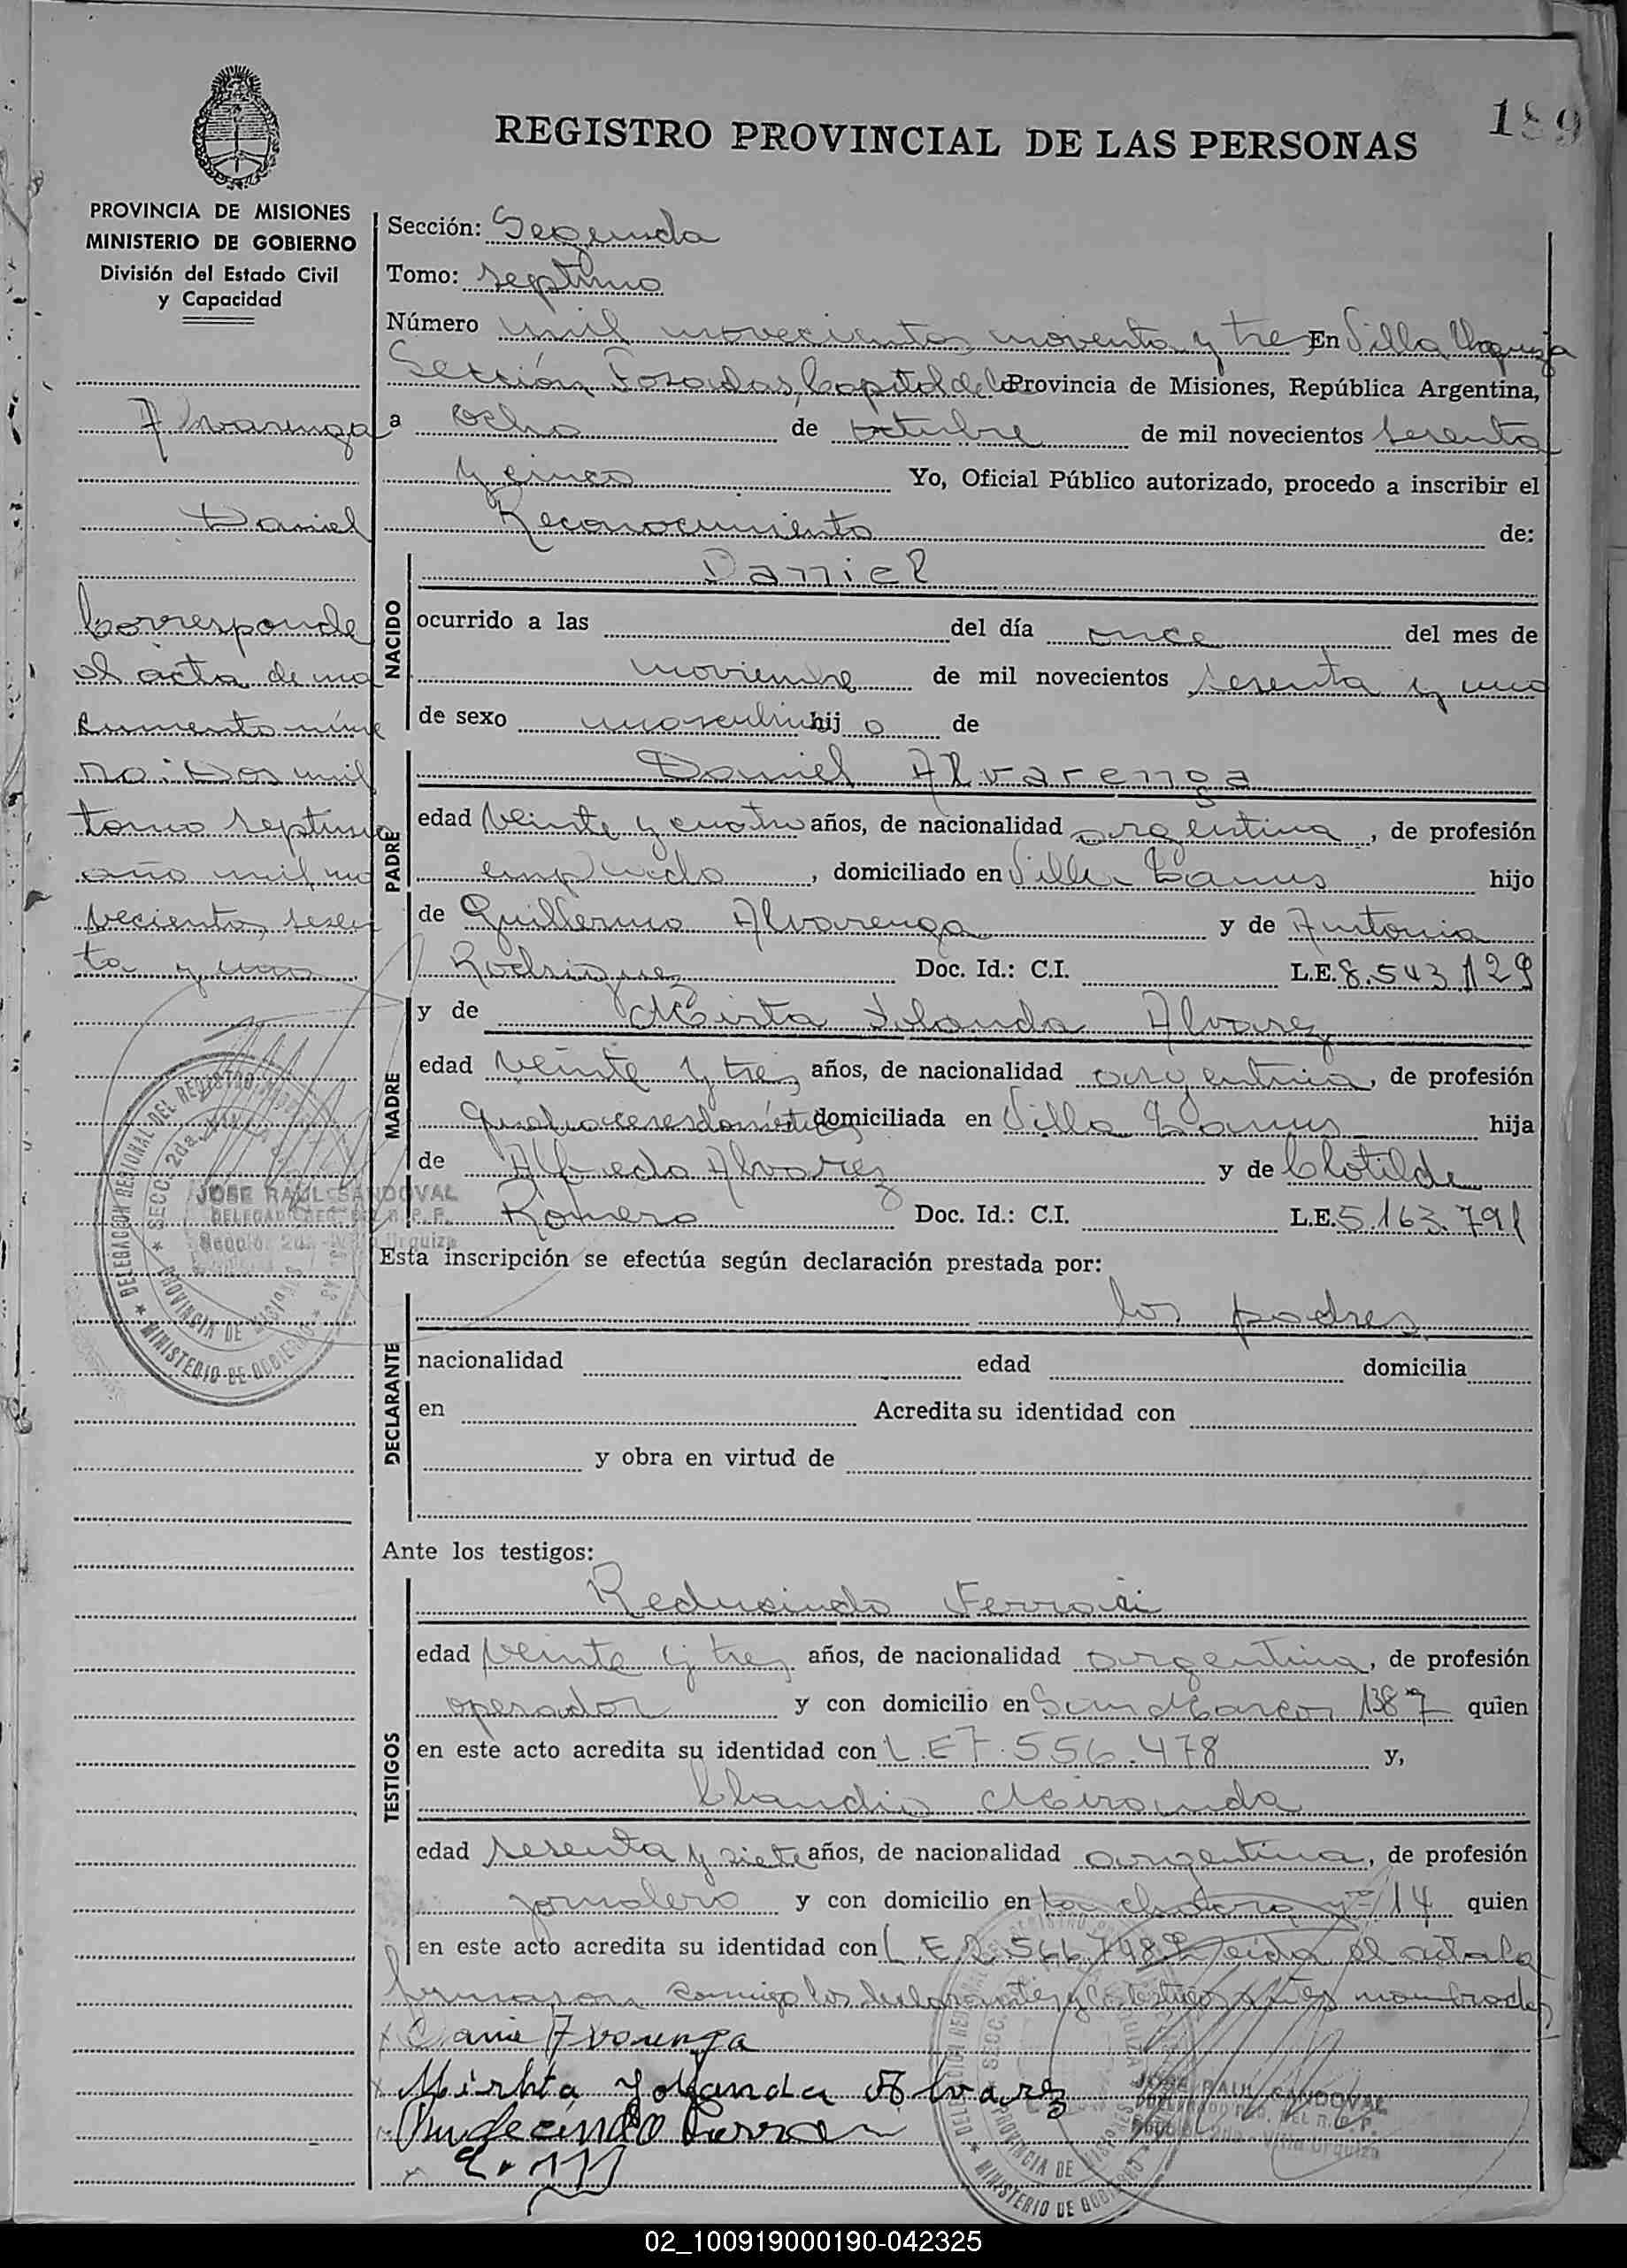 189
REGISTRO PROVINCIAL DE LAS PERSONAS
PROVINCIA DE MISIONES
MINISTERIO DE GOBIERNO
División del Estado Civil
y Capacidad
Alvarenga
Daniel
Corresponde
al acta de na
cimiento núme
ro: Dos mil
tomo septimo
año mil no
vecientos sesen
ta y uno
Sección: Segunda
Tomo: septimo
Número mil novecientos noventa y tres En Villa Urquiza
Sección Posadas, Capital de la Provincia de Misiones, República Argentina,
a ocho de octubre de mil novecientos sesenta
y cinco Yo, Oficial Público autorizado, procedo a inscribir el
Reconocimiento de:
NACIDO
Daniel
ocurrido a las del día once del mes de
noviembre de mil novecientos sesenta y uno
de sexo masculino hij o de
PADRE
Daniel Alvarenga
edad veinte y cuatro años, de nacionalidad argentina, de profesión
empleado, domiciliado en Villa Lanus hijo
de Guillermo Alvarenga y de Antonia
Rodriguez Doc. Id.: C.I. L.E. 8.543.129
MADRE
y de Mirta Iolanda Alvarez
edad veinte y tres años, de nacionalidad argentina, de profesión
domiciliada en Villa Lanus hija
de Alfredo Alvarez y de Clotilde
Romero Doc. Id.: C.I. L.E. 5.163.791
Esta inscripción se efectúa según declaración prestada por:
DECLARANTE
los padres
nacionalidad edad domicilia
en Acredita su identidad con
y obra en virtud de
Ante los testigos:
TESTIGOS
Redusindo Ferrari
edad veinte y tres años, de nacionalidad argentina, de profesión
operador y con domicilio en San Marcos 1387 quien
en este acto acredita su identidad con L.E 7.556.478 y,
Claudio Miranda
edad sesenta y siete años, de nacionalidad argentina, de profesión
jornalero y con domicilio en La chacra nº 114 quien
en este acto acredita su identidad con L.E 2.566.748. Leida el acta la
firmaron conmigo los declarantes y los testigos antes nombrados
Mirhta Yolanda Alvarez
JOSE RAUL SANDOVAL
DELEGADO REG. DEL R. P. P.
Sección 2da - Villa Urquiza
DELEGACION REGIONAL DEL REGISTRO
SECC. 2da. VILLA URQUIZA
PROVINCIA DE MISIONES
MINISTERIO DE GOBIERNO
JOSE RAUL SANDOVAL
DELEGADO REG. DEL R. P. P.
Sección 2da - Villa Urquiza
PROVINCIA DE MISIONES
MINISTERIO DE GOBIERNO
02_100919000190-042325